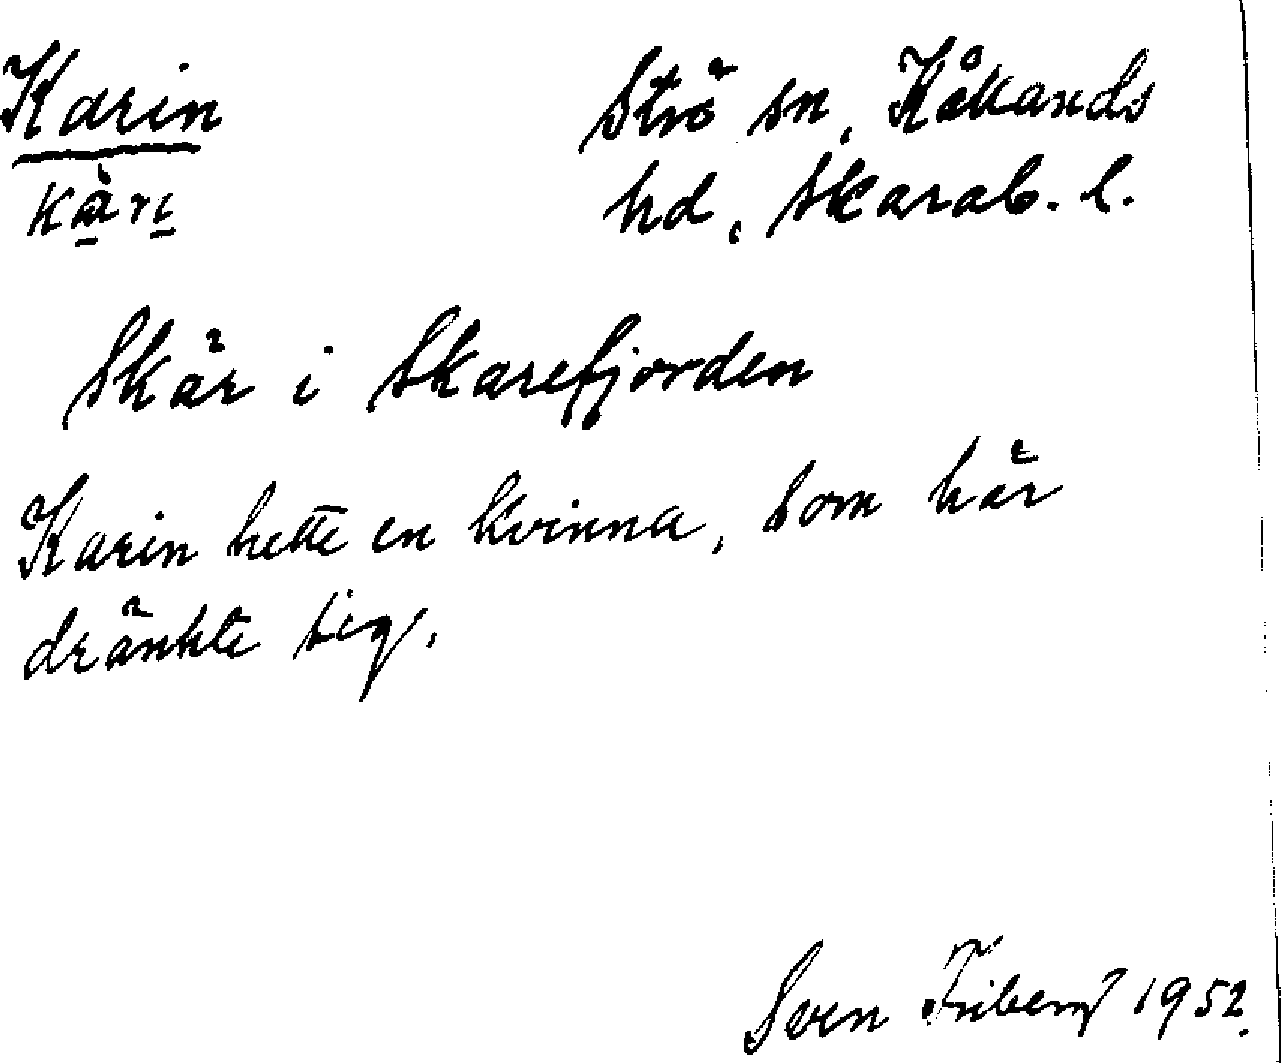 Karin
Strö sn, Kåkands
kàrı
hd, Skarab. l.
Skär i Skarefjorden
Karin hette en kvinna, som här
dränkte sig.
Sven Friberg 1952.